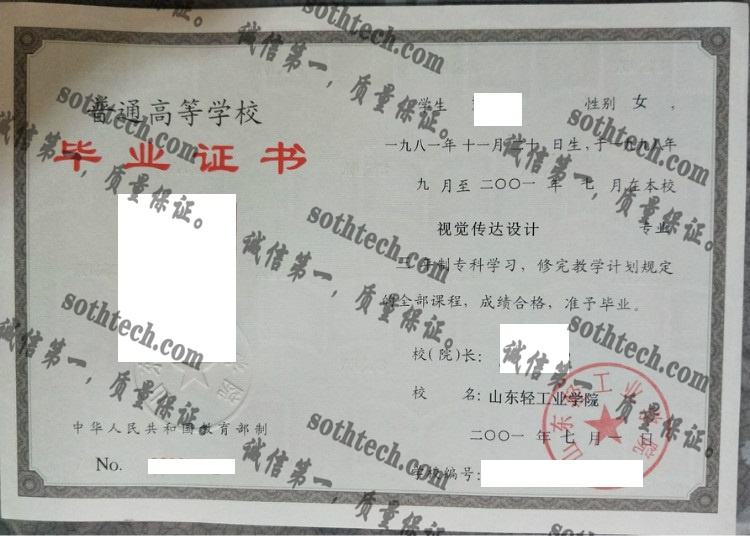 普通高等学校
毕业证书
中华人民共和国教育部制
No.
学生 性别 女 ，
一九八一年十一月二十日生，于一九九八年
九 月至 二〇〇一 年 七 月在本校
视觉传达设计 专业
三 年制专科学习，修完教学计划规定
的全部课程，成绩合格，准予毕业。
校(院)长：
校 名：山东轻工业学院
二〇〇一 年 七 月 一 日
学校编号：
山东轻工业学院
sothtech.com
诚信第一，质量保证。
sothtech.com
诚信第一，质量保证。
sothtech.com
诚信第一，质量保证。
sothtech.com
诚信第一，质量保证。
sothtech.com
诚信第一，质量保证。
sothtech.com
诚信第一，质量保证。
sothtech.com
诚信第一，质量保证。